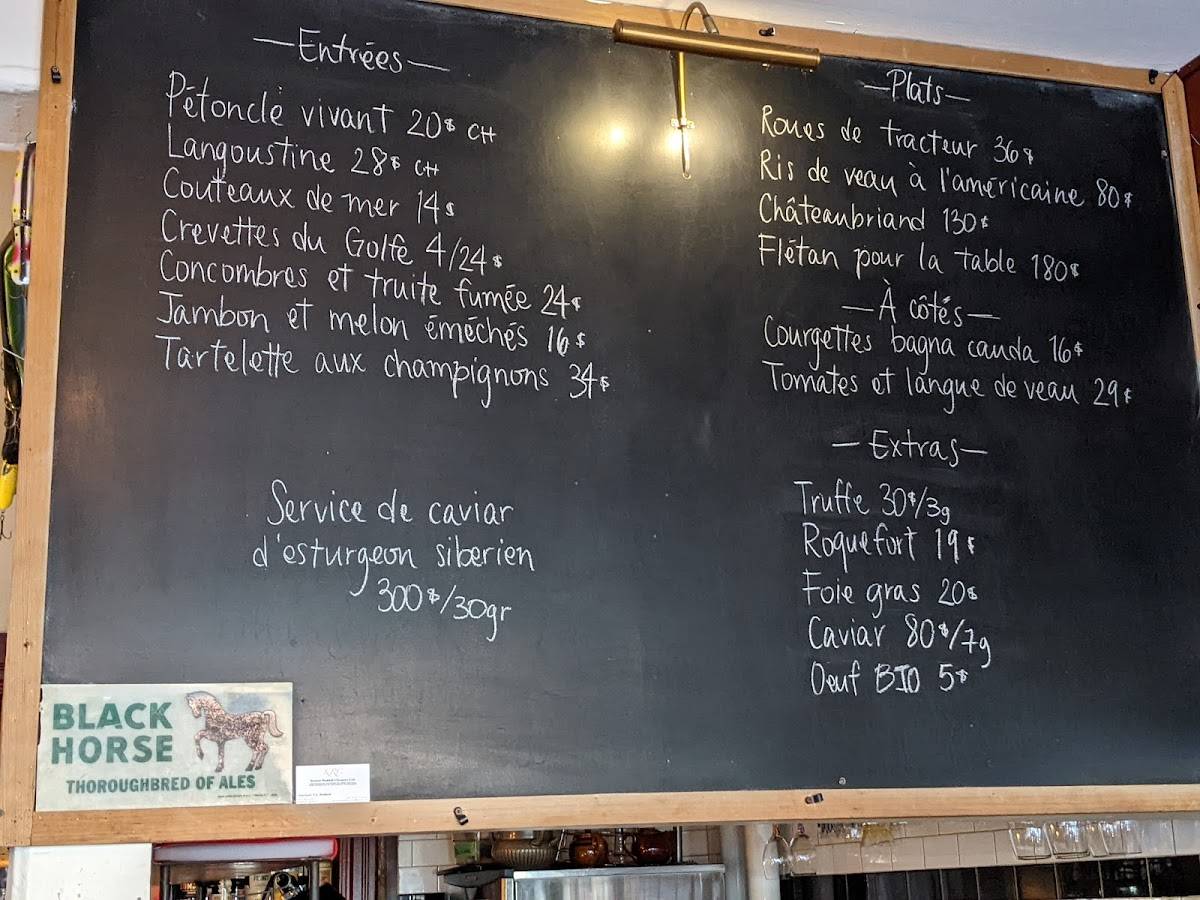 —Entrées—
Pétoncle vivant 20$ CH
Langoustine 28$ CH
Couteaux de mer 14$
Crevettes du Golfe 4/24$
Concombres et truite fumée 24$
Jambon et melon éméchés 16$
Tartelette aux champignons 34$
Service de caviar
d'esturgeon siberien
300$/30gr
—Plats—
Roues de tracteur 36$
Ris de veau à l'américaine 80$
Châteaubriand 130$
Flétan pour la table 180$
—À côtés—
Courgettes bagna cauda 16$
Tomates et langue de veau 29$
—Extras—
Truffe 30$/3g
Roquefort 19$
Foie gras 20$
Caviar 80$/7g
Oeuf BIO 5$
BLACK
HORSE
THOROUGHBRED OF ALES